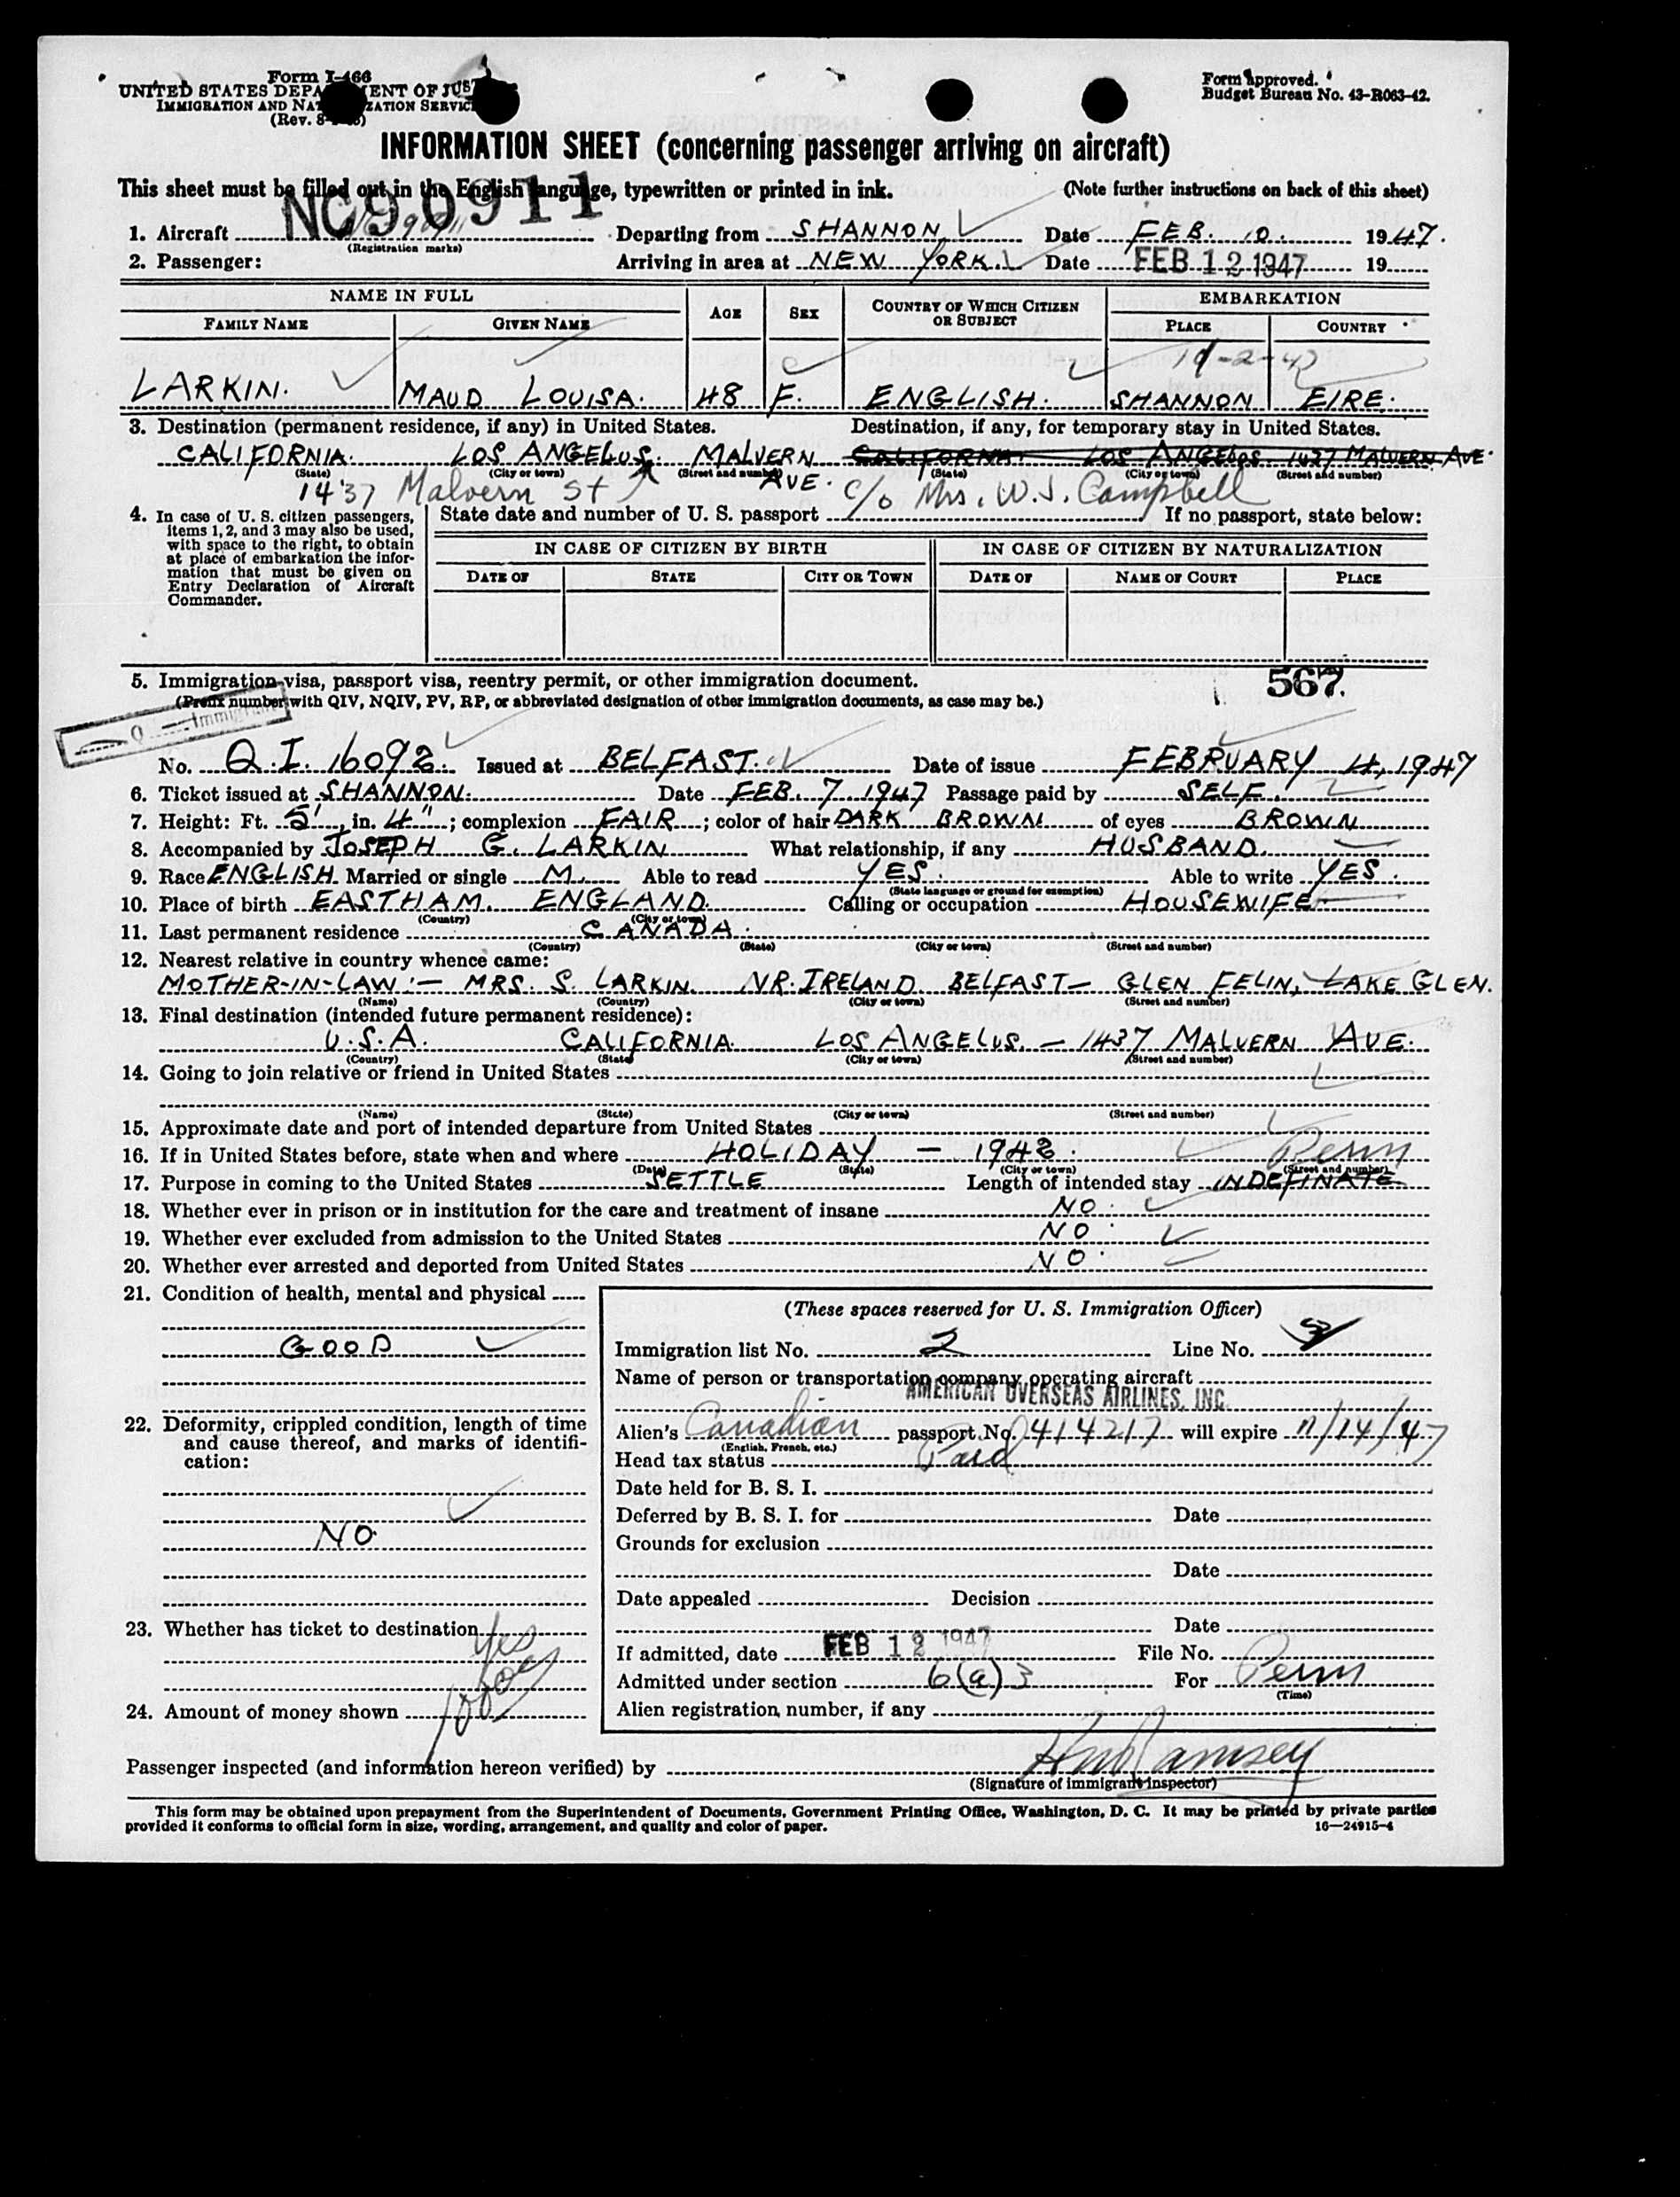 Form I-466
UNITED STATES DEPARTMENT OF JUST
IMMIGRATION AND NATURALIZATION SERVICE
(Rev. 8-
Form approved.
Budget Bureau No. 43-R063-42.
INFORMATION SHEET (concerning passenger arriving on aircraft)
This sheet must be filled out in the English language, typewritten or printed in ink. (Note further instructions on back of this sheet)
NC90911
1. Aircraft NC90911 Departing from SHANNON Date FEB. 10. 1947.
(Registration marks)
2. Passenger: Arriving in area at NEW YORK. Date FEB 12 1947 19
NAME IN FULL AGE SEX COUNTRY OF WHICH CITIZEN OR SUBJECT EMBARKATION
FAMILY NAME GIVEN NAME PLACE COUNTRY
LARKIN. MAUD LOUISA. 48 F. ENGLISH. SHANNON EIRE.
3. Destination (permanent residence, if any) in United States. Destination, if any, for temporary stay in United States.
CALIFORNIA. LOS ANGELUS. MALVERN AVE. CALIFORNIA. LOS ANGELOS. 1437 MALVERN AVE.
(State) (City or town) (Street and number) (State) (City or town) (Street and number)
1437 Malvern St c/o Mrs. W.J. Campbell
4. In case of U. S. citizen passengers, items 1, 2, and 3 may also be used, with space to the right, to obtain at place of embarkation the information that must be given on Entry Declaration of Aircraft Commander.
State date and number of U. S. passport If no passport, state below:
IN CASE OF CITIZEN BY BIRTH IN CASE OF CITIZEN BY NATURALIZATION
DATE OF STATE CITY OR TOWN DATE OF NAME OF COURT PLACE
5. Immigration visa, passport visa, reentry permit, or other immigration document. 567.
(Prefix number with QIV, NQIV, PV, RP, or abbreviated designation of other immigration documents, as case may be.)
Q — Immigrant
No. Q.I. 16092. Issued at BELFAST. Date of issue FEBRUARY 4, 1947
6. Ticket issued at SHANNON. Date FEB. 7 1947 Passage paid by SELF.
7. Height: Ft. 5', in. 4"; complexion FAIR; color of hair DARK BROWN of eyes BROWN
8. Accompanied by JOSEPH G. LARKIN What relationship, if any HUSBAND.
9. Race ENGLISH Married or single M. Able to read YES. Able to write YES.
(State language or ground for exemption)
10. Place of birth EASTHAM. ENGLAND. Calling or occupation HOUSEWIFE
(Country) (City or town)
11. Last permanent residence CANADA.
(Country) (State) (City or town) (Street and number)
12. Nearest relative in country whence came:
MOTHER-IN-LAW :— MRS. S. LARKIN. NR. IRELAND. BELFAST— GLEN FELIN, LAKE GLEN.
(Name) (Country) (City or town) (Street and number)
13. Final destination (intended future permanent residence):
U.S.A. CALIFORNIA. LOS ANGELUS. — 1437 MALVERN AVE.
(Country) (State) (City or town) (Street and number)
14. Going to join relative or friend in United States
(Name) (State) (City or town) (Street and number)
15. Approximate date and port of intended departure from United States
16. If in United States before, state when and where HOLIDAY — 1942. Perm
(Date) (State) (City or town) (Street and number)
17. Purpose in coming to the United States SETTLE Length of intended stay INDEFINATE
18. Whether ever in prison or in institution for the care and treatment of insane NO.
19. Whether ever excluded from admission to the United States NO.
20. Whether ever arrested and deported from United States NO.
21. Condition of health, mental and physical
GOOD
22. Deformity, crippled condition, length of time and cause thereof, and marks of identification:
NO
23. Whether has ticket to destination yes
24. Amount of money shown
(These spaces reserved for U. S. Immigration Officer)
Immigration list No. 2 Line No.
Name of person or transportation company operating aircraft
AMERICAN OVERSEAS AIRLINES, INC.
Alien's Canadian passport No. 414217 will expire 11/14/47
(English, French, etc.)
Head tax status Paid
Date held for B. S. I.
Deferred by B. S. I. for Date
Grounds for exclusion
Date
Date appealed Decision
Date
If admitted, date FEB 12 1947 File No.
Admitted under section 6(a)3 For Perm
(Time)
Alien registration number, if any
Passenger inspected (and information hereon verified) by Ramsey
(Signature of immigrant inspector)
This form may be obtained upon prepayment from the Superintendent of Documents, Government Printing Office, Washington, D. C. It may be printed by private parties
provided it conforms to official form in size, wording, arrangement, and quality and color of paper. 16—24915-4